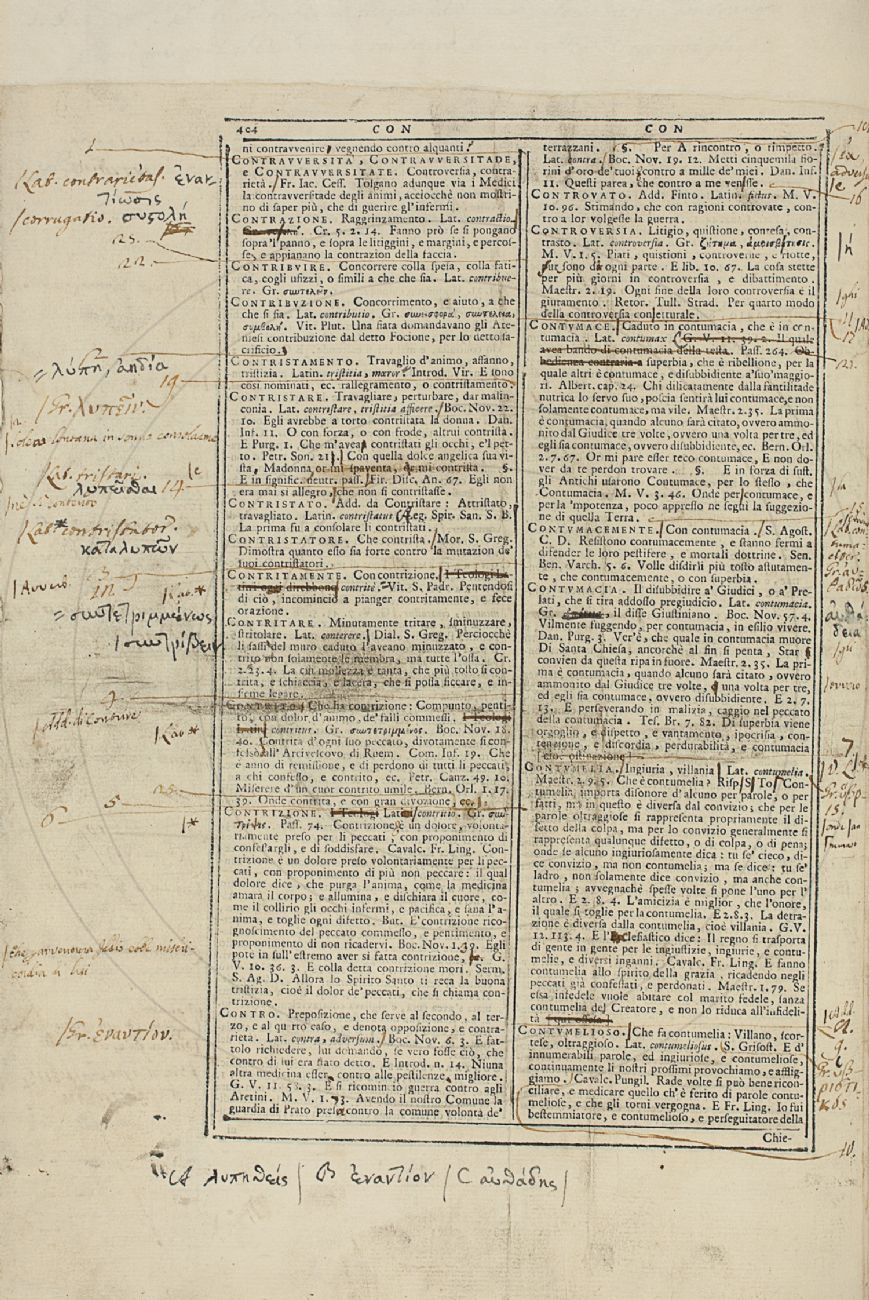 404 CON CON
ni contravvenire, vegnendo contro alquanti.
CONTRAVVERSITÀ, CONTRAVVERSITADE,
e CONTRAVVERSITATE. Controversia, contra-
rietà. Fr. Iac. Cess. Tolgano adunque via i Medici
la contravversitade degli animi, acciocchè non mostri-
no di saper più, che di guerire gl'infermi.
CONTRAZIONE. Raggrinzamento. Lat. contractio.
Cr. 5. 2. 14. Fanno prò se si pongano
sopra 'l panno, e sopra le litiggini, e margini, e percos-
se, e appianano la contrazion della faccia.
CONTRIBUIRE. Concorrere colla spesa, colla fati-
ca, cogli ufizzi, o simili a che che sia. Lat. contribue-
re. Gr. συντελεῖν.
CONTRIBVZIONE. Concorrimento, e aiuto, a che
che si sia. Lat. contributio. Gr. συνεισφορά, συντέλεια,
συμβολή. Vit. Plut. Una fiata domandavano gli Ate-
niesi contribuzione dal detto Focione, per lo detto sa-
crificio.
CONTRISTAMENTO. Travaglio d'animo, affanno,
tristizia. Latin. tristitia, maror. Introd. Vir. E sono
così nominati, ec. rallegramento, o contristamento.
CONTRISTARE. Travagliare, perturbare, dar malin-
conia. Lat. contristare, tristitia afficere. Boc. Nov. 22.
10. Egli avrebbe a torto contristata la donna. Dan.
Inf. 11. O con forza, o con frode, altrui contrista.
E Purg. 1. Che m'avea contristati gli occhi, e 'l pet-
to. Petr. Son. 21. Con quella dolce angelica sua vi-
sta, Madonna or mi spaventa, or mi contrista. §.
E in signific. neutr. pass. Fir. Disc. An. 67. Egli non
era mai sì allegro, che non si contristasse.
CONTRISTATO. Add. da Contristare: Attristato,
travagliato. Latin. contristatus. Leg. Spir. San. S. B.
La prima fu a consolare li contristati.
CONTRISTATORE. Che contrista. Mor. S. Greg.
Dimostra quanto esso sia forte contro la mutazion de'
suoi contristatori.
CONTRITAMENTE. Con contrizione. I Teologi La-
tini oggi direbbono contritè. Vit. S. Padr. Pentendosi
di ciò, incominciò a pianger contritamente, e fece
orazione.
CONTRITARE. Minutamente tritare, sminuzzare,
stritolare. Lat. conterere. Dial. S. Greg. Perciocchè
li sassi del muro caduto l'aveano minuzzato, e con-
trito non solamente le membra, ma tutte l'ossa. Cr.
2. 23. 4. La cui mollezza è tanta, che più tosto si con-
trita, e schiaccia, e lacera, che si possa ficcare, e in-
sieme legare.
CONTRITO. Che ha contrizione: Compunto, penti-
to, con dolor d'animo, de' falli commessi. I Teologi
Latini contritus. Gr. συντετριμμένος. Boc. Nov. 18.
46. Contrita d'ogni suo peccato, divotamente si con-
fessò dall' Arcivescovo di Ruem. Com. Inf. 19. Che
è anno di remissione, e di perdono di tutti li peccati,
a chi confesso, e contrito, ec. Petr. Canz. 49. 10.
Miserere d'un cuor contrito umile. Bern. Orl. 1. 17.
39. Onde contrita, e con gran divozione, ec.
CONTRIZIONE. I Teologi Lat. contritio. Gr. συν-
τριψις. Pass. 74. Contrizione è un dolore, volonta-
riamente preso per li peccati, con proponimento di
confessargli, e di soddisfare. Cavalc. Fr. Ling. Con-
trizione è un dolore preso volontariamente per li pec-
cati, con proponimento di più non peccare: il qual
dolore dice, che purga l'anima, come la medicina
amara il corpo; e allumina, e dischiara il cuore, co-
me il collirio gli occhi infermi, e pacifica, e sana l'a-
nima, e toglie ogni difetto. But. E' contrizione rico-
gnoscimento del peccato commesso, e pentimento, e
proponimento di non ricadervi. Boc. Nov. 1. 39. Egli
potè in sull'estremo aver sì fatta contrizione, ec. G.
V. 10. 36. 3. E colla detta contrizione morì. Serm.
S. Ag. D. Allora lo Spirito Santo ti reca la buona
tristizia, cioè il dolor de' peccati, che si chiama con-
trizione.
CONTRO. Preposizione, che serve al secondo, al ter-
zo, e al quarto caso, e denota opposizione, e contra-
rietà. Lat. contra, adversum. Boc. Nov. 6. 3. E fat-
tolo richiedere, lui domandò, se vero fosse ciò, che
contro di lui era stato detto. E Introd. n. 14. Niuna
altra medicina esser contro alle pestilenze migliore.
G. V. 11. 53. 3. E si ricominciò guerra contro agli
Aretini. M. V. 1. 73. Avendo il nostro Comune la
guardia di Prato presa contro la comune volontà de'
terrazzani. §. Per A rincontro, o rimpetto.
Lat. contra. Boc. Nov. 19. 12. Metti cinquemila fio-
rini d'oro de' tuoi contro a mille de' miei. Dan. Inf.
11. Questi parea, che contro a me venesse.
CONTROVATO. Add. Finto. Latin. fictus. M. V.
10. 96. Stimando, che con ragioni controvate, con-
tro a lor volgesse la guerra.
CONTROVERSIA. Litigio, quistione, contesa, con-
trasto. Lat. controversia. Gr. ζήτημα, ἀμφισβήτησις.
M. V. 1. 5. Piati, quistioni, controversie, e riotte,
pur sono da ogni parte. E lib. 10. 67. La cosa stette
per più giorni in controversia, e dibattimento.
Maestr. 2. 19. Ogni fine della loro controversia è il
giuramento. Retor. Tull. Strad. Per quarto modo
della controversia conjetturale.
CONTVMACE. Caduto in contumacia, che è in con-
tumacia. Lat. contumax. G. V. 11. 39. 2. Il quale
avea bando di contumacia della testa. Pass. 264. Ob-
bedienza contraria a superbia, che è ribellione, per la
quale altri è contumace, e disubbidiente a' suo' maggio-
ri. Albert. cap. 24. Chi dilicatamente dalla fantilitade
nutrica lo servo suo, poscia sentirà lui contumace, e non
solamente contumace, ma vile. Maestr. 2. 35. La prima
è contumacia, quando alcuno sarà citato, ovvero ammo-
nito dal Giudice tre volte, ovvero una volta per tre, ed
egli sia contumace, ovvero disubbidiente, ec. Bern. Orl.
2. 7. 67. Or mi pare esser teco contumace, E non do-
ver da te perdon trovare. §. E in forza di sust.
gli Antichi usarono Contumace, per lo stesso, che
Contumacia. M. V. 3. 46. Onde per contumace, e
per la 'mpotenza, poco appresso ne seguì la suggezio-
ne di quella Terra.
CONTUMACEMENTE. Con contumacia. S. Agost.
C. D. Resistono contumacemente, e stanno fermi a
difender le loro pestifere, e mortali dottrine. Sen.
Ben. Varch. 5. 6. Volle disdirli più tosto astutamen-
te, che contumacemente, o con superbia.
CONTVMACIA. Il disubbidire a' Giudici, o a' Pre-
lati, che si tira addosso pregiudicio. Lat. contumacia.
Gr. il disse Giustiniano. Boc. Nov. 57. 4.
Vilmente fuggendo, per contumacia, in esilio vivere.
Dan. Purg. 3. Ver'è, che quale in contumacia muore
Di Santa Chiesa, ancorchè al fin si penta, Star
convien da questa ripa in fuore. Maestr. 2. 35. La pri-
ma è contumacia, quando alcuno sarà citato, ovvero
ammonito dal Giudice tre volte, una volta per tre,
ed egli sia contumace, ovvero disubbidiente. E 2. 7.
13. E perseverando in malizia, caggio nel peccato
della contumacia. Tes. Br. 7. 82. Di superbia viene
orgoglio, e dispetto, e vantamento, ipocrisia, con-
tenzione, e discordia, perdurabilità, e contumacia
cioè ostinazione.
CONTVMELIA. Ingiuria, villania. Lat. contumelia.
Maestr. 2. 9. 5. Che è contumelia? Risp. S. To. Con-
tumelia importa disonore d'alcuno per parole, o per
fatti, ma in questo è diversa dal convizio; che per le
parole oltraggiose si rappresenta propriamente il di-
fetto della colpa, ma per lo convizio generalmente si
rappresenta qualunque difetto, o di colpa, o di pena;
onde se alcuno ingiuriosamente dica: tu se' cieco, di-
ce convizio, ma non contumelia; ma se dice: tu se'
ladro, non solamente dice convizio, ma anche con-
tumelia; avvegnachè spesse volte si pone l'uno per l'
altro. E 2. 8. 4. L'amicizia è miglior, che l'onore,
il quale si toglie per la contumelia. E 2. 8. 3. La detra-
zione è diversa dalla contumelia, cioè villania. G. V.
12. 113. 4. E l'Ecclesiastico dice: Il regno si trasporta
di gente in gente per le ingiustizie, ingiurie, e contu-
melie, e diversi inganni. Cavalc. Fr. Ling. E fanno
contumelia allo spirito della grazia, ricadendo negli
peccati già confessati, e perdonati. Maestr. 1. 79. Se
essa infedele vuole abitare col marito fedele, sanza
contumelia del Creatore, e non lo riduca all'infideli-
tà (qui offesa.)
CONTUMELIOSO. Che fa contumelia: Villano, scor-
tese, oltraggioso. Lat. contumeliosus. S. Grisost. E d'
innumerabili parole, ed ingiuriose, e contumeliose,
continuamente li nostri prossimi provochiamo, e afflig-
giamo. Cavalc. Pungil. Rade volte si può bene ricon-
ciliare, e medicare quello ch'è ferito di parole contu-
meliose, e che gli torni vergogna. E Fr. Ling. Io fui
bestemmiatore, e contumelioso, e perseguitatore della
Chie-
Lat. contrarietas. ἐναν-
τίωσις
/corrugatio. συστολή
23.
22.
2
= λύπη, ἀηδία
19
/Gr. λυπεῖν.
Lat. tristari
λυπεῖσθαι 14
Lat.* contristator.
καταλυπῶν
= συντετριμμένως
/συντρίβειν
9
Add. di Contrire
Lat. *
5
6
/*
/Gr. ἐναντίον.
A λυπηθείς / B ἐναντίον / C αὐθάδης /
10
16
17
23.
αὐθά-
δεια
7
10.